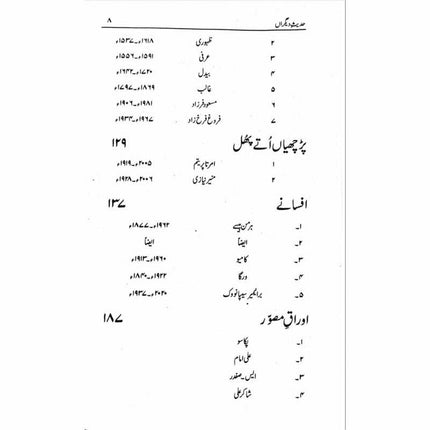 حدیثِ دیگراں ۸
۲ ظہوری ۱۶۱۸ء۔۱۵۳۷ء
۳ عرفی ۱۵۹۱ء۔۱۵۵۶ء
۴ بیدل ۱۷۲۰ء۔۱۶۴۴ء
۵ غالب ۱۸۶۹ء۔۱۷۹۷ء
۶ مسعود فرزاد ۱۹۸۱ء۔۱۹۰۶ء
۷ فروغ فرخ زاد ۱۹۶۷ء۔۱۹۳۴ء
پڑچھیاں اُتے پھل ۱۲۹
۱ امرتا پریتم ۲۰۰۵ء۔۱۹۱۹ء
۲ منیر نیازی ۲۰۰۶ء۔۱۹۲۸ء
افسانے ۱۳۷
۱۔ ہرمن ہیسے ۱۹۶۲ء۔۱۸۷۷ء
۲۔ ایضاً ایضاً
۳۔ کامیو ۱۹۶۰ء۔۱۹۱۳ء
۴۔ ورگا ۱۹۲۲ء۔۱۸۴۰ء
۵۔ ۲۰۲۰ء۔۱۹۳۷ء
اوراقِ مصوّر ۱۸۷
۱۔ پکاسو
۲۔ علی امام
۳۔ ایس۔صفدر
۴۔ شاکر علی